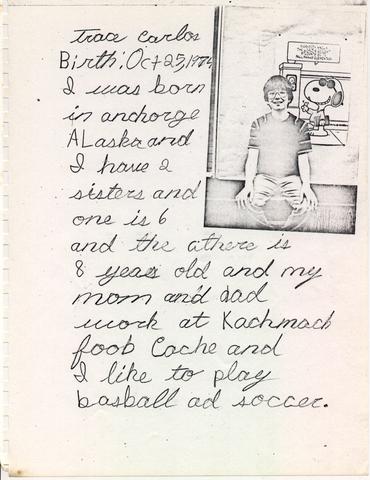 trace carlos
Birth: Oct 25, 1974
I was born
in anchorge
ALaska and
I have 2
sisters and
one is 6
and the athere is
8 years old and my
mom and dad
work at Kachmach
foob Cache and
I like to play
basball ad soccer.